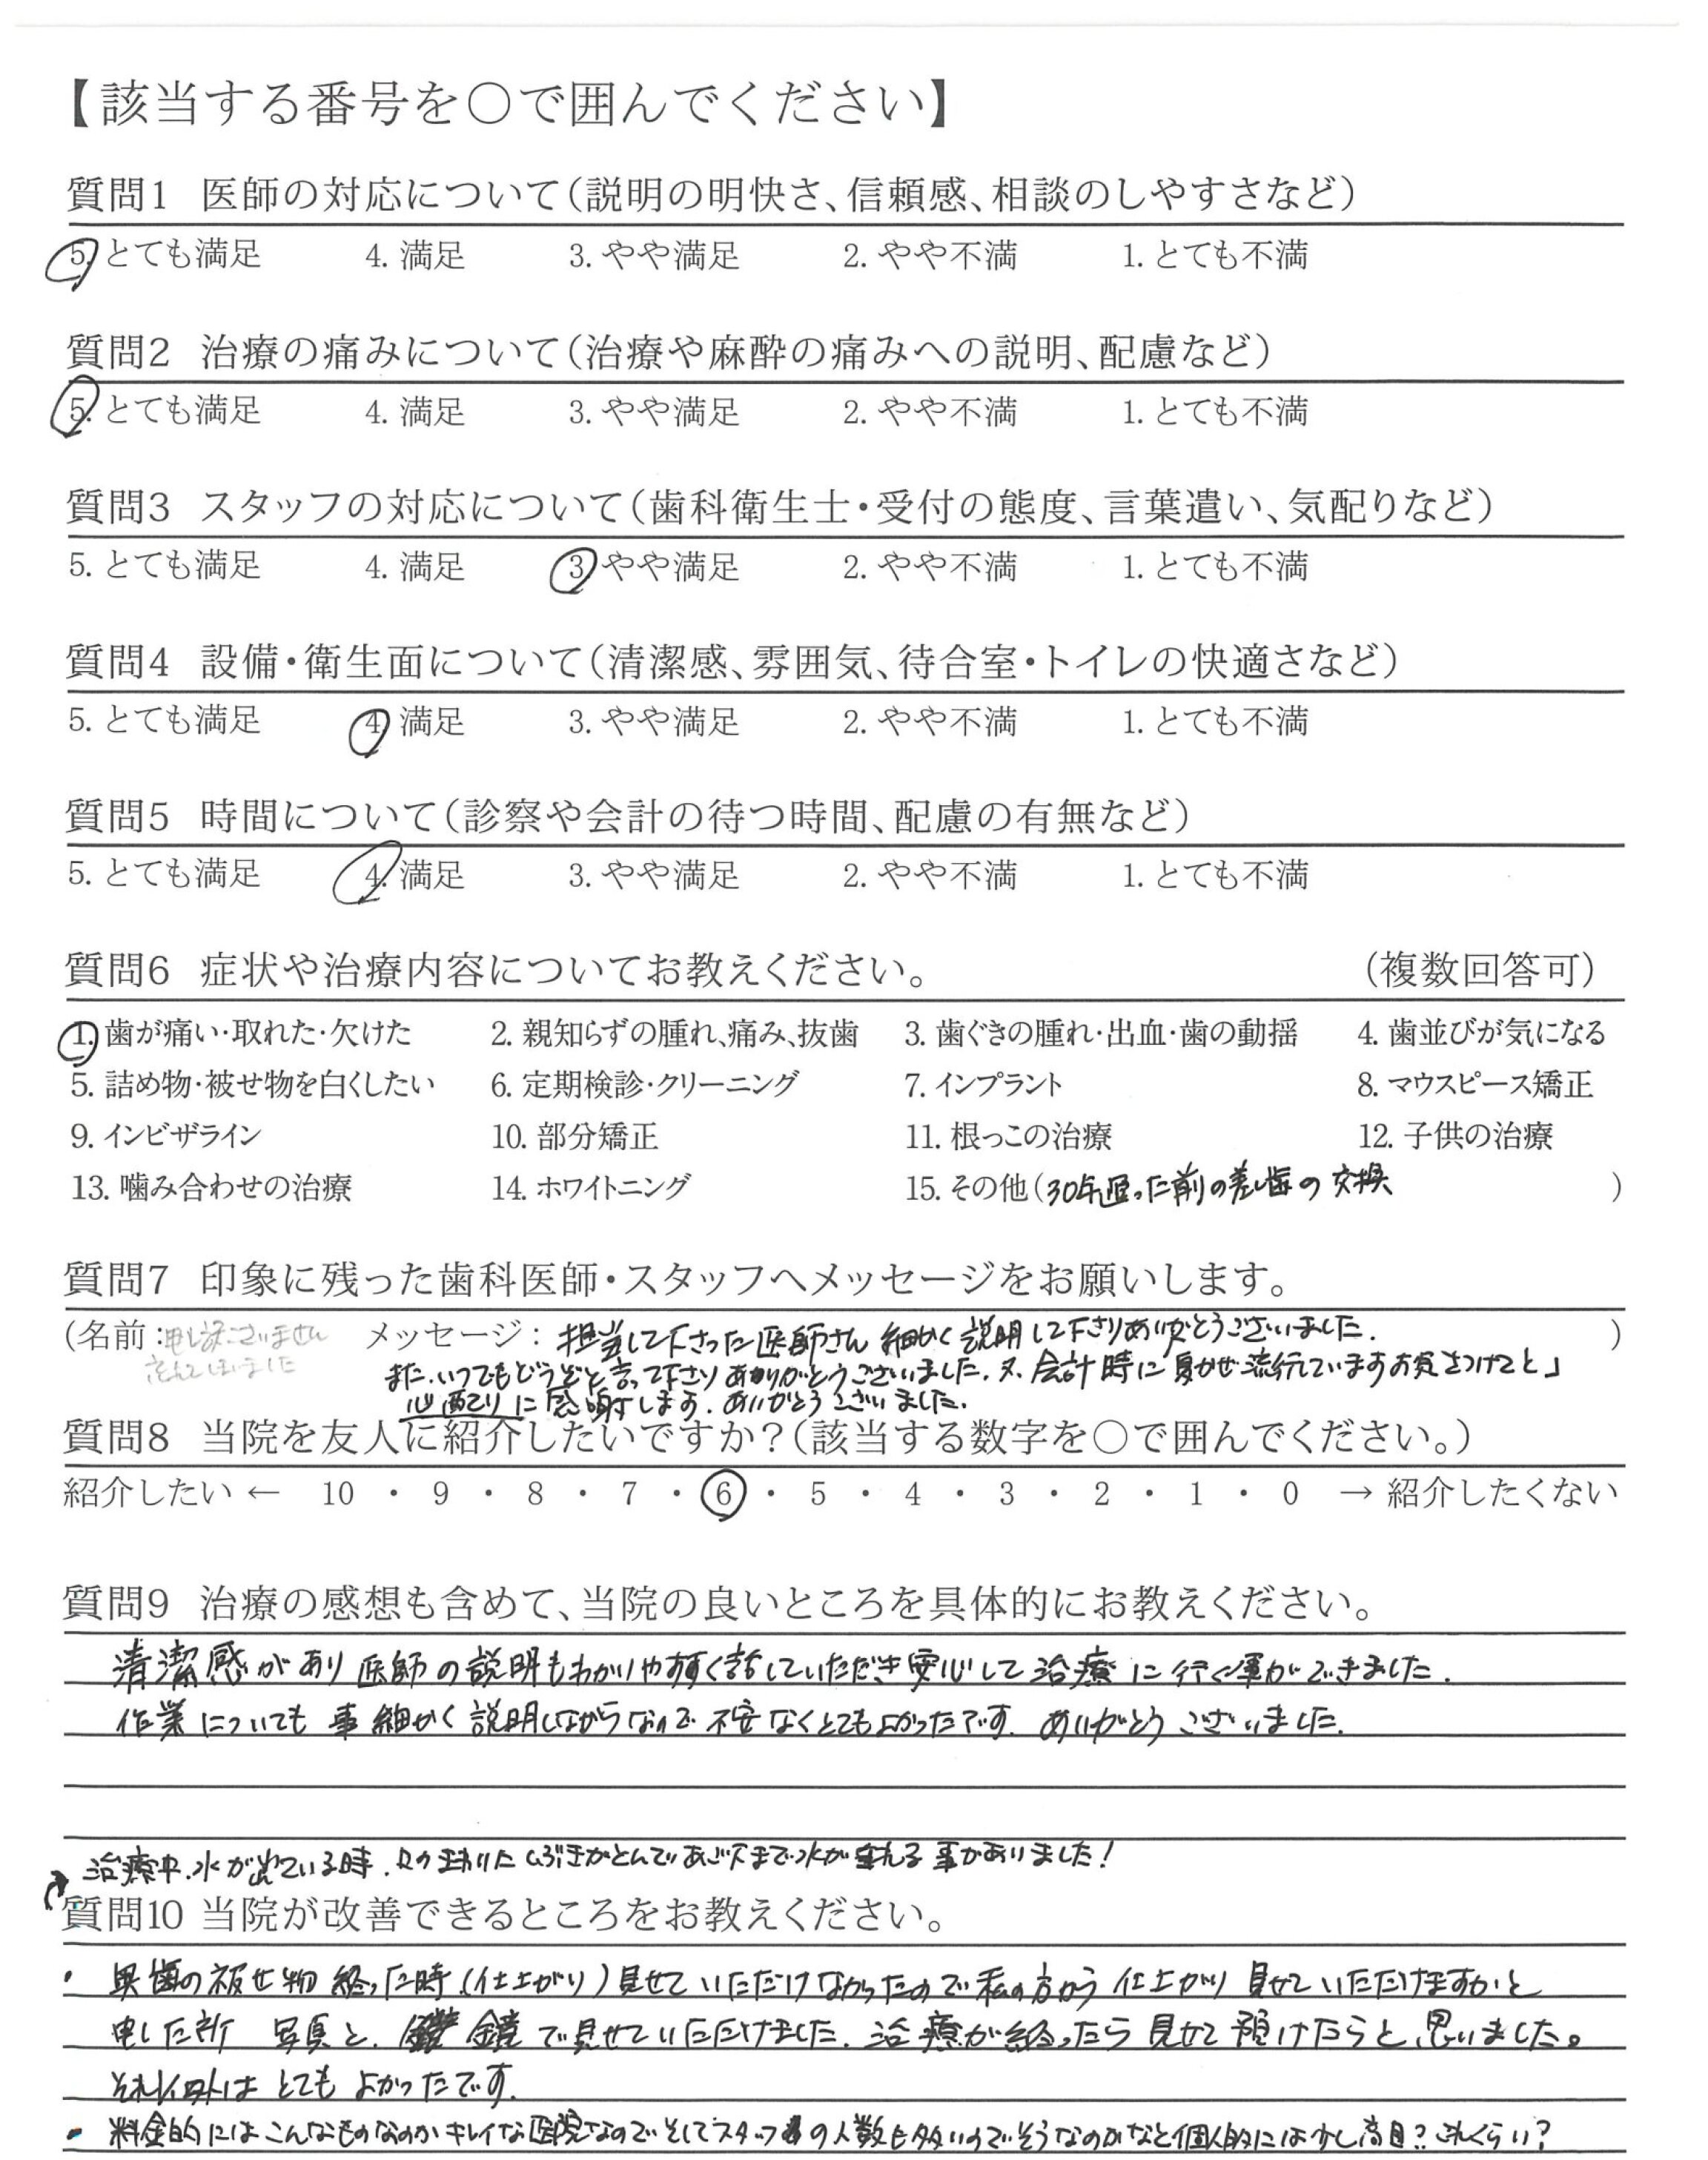 【該当する番号を〇で囲んでください】
質問1 医師の対応について（説明の明快さ、信頼感、相談のしやすさなど）
5. とても満足 4. 満足 3. やや満足 2. やや不満 1. とても不満
質問2 治療の痛みについて（治療や麻酔の痛みへの説明、配慮など）
5. とても満足 4. 満足 3. やや満足 2. やや不満 1. とても不満
質問3 スタッフの対応について（歯科衛生士・受付の態度、言葉遣い、気配りなど）
5. とても満足 4. 満足 3. やや満足 2. やや不満 1. とても不満
質問4 設備・衛生面について（清潔感、雰囲気、待合室・トイレの快適さなど）
5. とても満足 4. 満足 3. やや満足 2. やや不満 1. とても不満
質問5 時間について（診察や会計の待つ時間、配慮の有無など）
5. とても満足 4. 満足 3. やや満足 2. やや不満 1. とても不満
質問6 症状や治療内容についてお教えください。 （複数回答可）
1. 歯が痛い・取れた・欠けた 2. 親知らずの腫れ、痛み、抜歯 3. 歯ぐきの腫れ・出血・歯の動揺 4. 歯並びが気になる
5. 詰め物・被せ物を白くしたい 6. 定期検診・クリーニング 7. インプラント 8. マウスピース矯正
9. インビザライン 10. 部分矯正 11. 根っこの治療 12. 子供の治療
13. 噛み合わせの治療 14. ホワイトニング 15. その他（30年近った前の差し歯の交換 ）
質問7 印象に残った歯科医師・スタッフへメッセージをお願いします。
（名前：申し訳ございません メッセージ：担当して下さった医師さん 細かく説明して下さりありがとうございました. ）
忘れてしまいました
また、いつでもどうぞと言って下さりありがとうございました. 又、会計時に夏かぜ流行していますお気をつけてと」
心配りに感謝します. ありがとうございました.
質問8 当院を友人に紹介したいですか？（該当する数字を〇で囲んでください。）
紹介したい ← 10 ・ 9 ・ 8 ・ 7 ・ 6 ・ 5 ・ 4 ・ 3 ・ 2 ・ 1 ・ 0 → 紹介したくない
質問9 治療の感想も含めて、当院の良いところを具体的にお教えください。
清潔感があり医師の説明もわかりやすく話していただき安心して治療に行く事ができました.
作業についても事細かく説明しながらなので不安なくとてもよかったです. ありがとうございました.
治療中.水が出ている時.口のまわりにしぶきがとんであご下まで水が垂れる事がありました!
質問10 当院が改善できるところをお教えください。
・ 奥歯の被せ物終った時(仕上がり)見せていただけなかったので私の方から仕上がり見せていただけますかと
申した所 写真と、鏡で見せていただけました. 治療が終ったら見せて預けたらと思いました。
それ以外はとてもよかったです.
・ 料金的にはこんなものなのかキレイな医院なのでそしてスタッフの人数も多いのでそうなのかなと個人的には少し高目? これくらい?